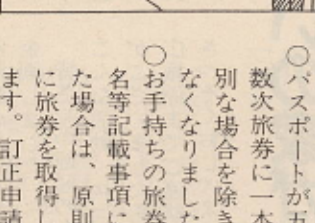 ○パスポートが五
数次旅券に一本
別な場合を除き
なくなりました
○お手持ちの旅券
名等記載事項に
た場合は、原則
に旅券を取得し
ます。訂正申請